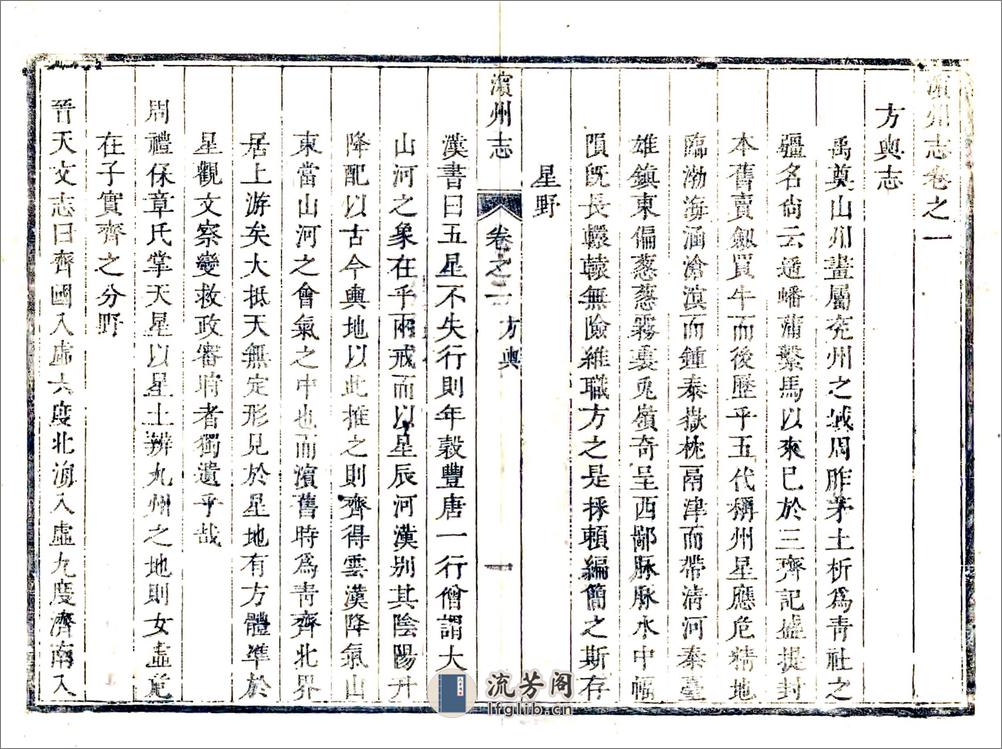 濵州志卷之一
方輿志
禹奠山州畫屬兖州之域周胙茅土析爲青社之
疆名尙云通蟠蒲繫馬以來已於三齊記盛提封
本舊賣劔買牛而後歷乎五代稱州星應危精地
臨渤海涵滄溟而鍾泰嶽枕鬲津而帶淸河秦臺
雄鎮東偏蔥蔥霧裏兎嶺奇呈西鄙脉脉水中幅
隕旣長轘轅無險維職方之是採賴編簡之斯存
星野
濵州志 卷之一 方輿 一
漢書曰五星不失行則年穀豐唐一行僧謂大
山河之象在乎兩戒而以星辰河漢别其陰陽升
降配以古今輿地以此推之則齊得雲漢降氣山
東當山河之會氣之中也而濵舊時爲靑齊北界
居上游矣大抵天無定形見於星地有方體準於
星觀文察變救政審時者獨遺乎哉
周禮保章氏掌天星以星土辨九州之地則女虛危
在子實齊之分野
晉天文志曰齊國入虛六度北海入虛九度濟南入
流芳阁
lfglib.cn